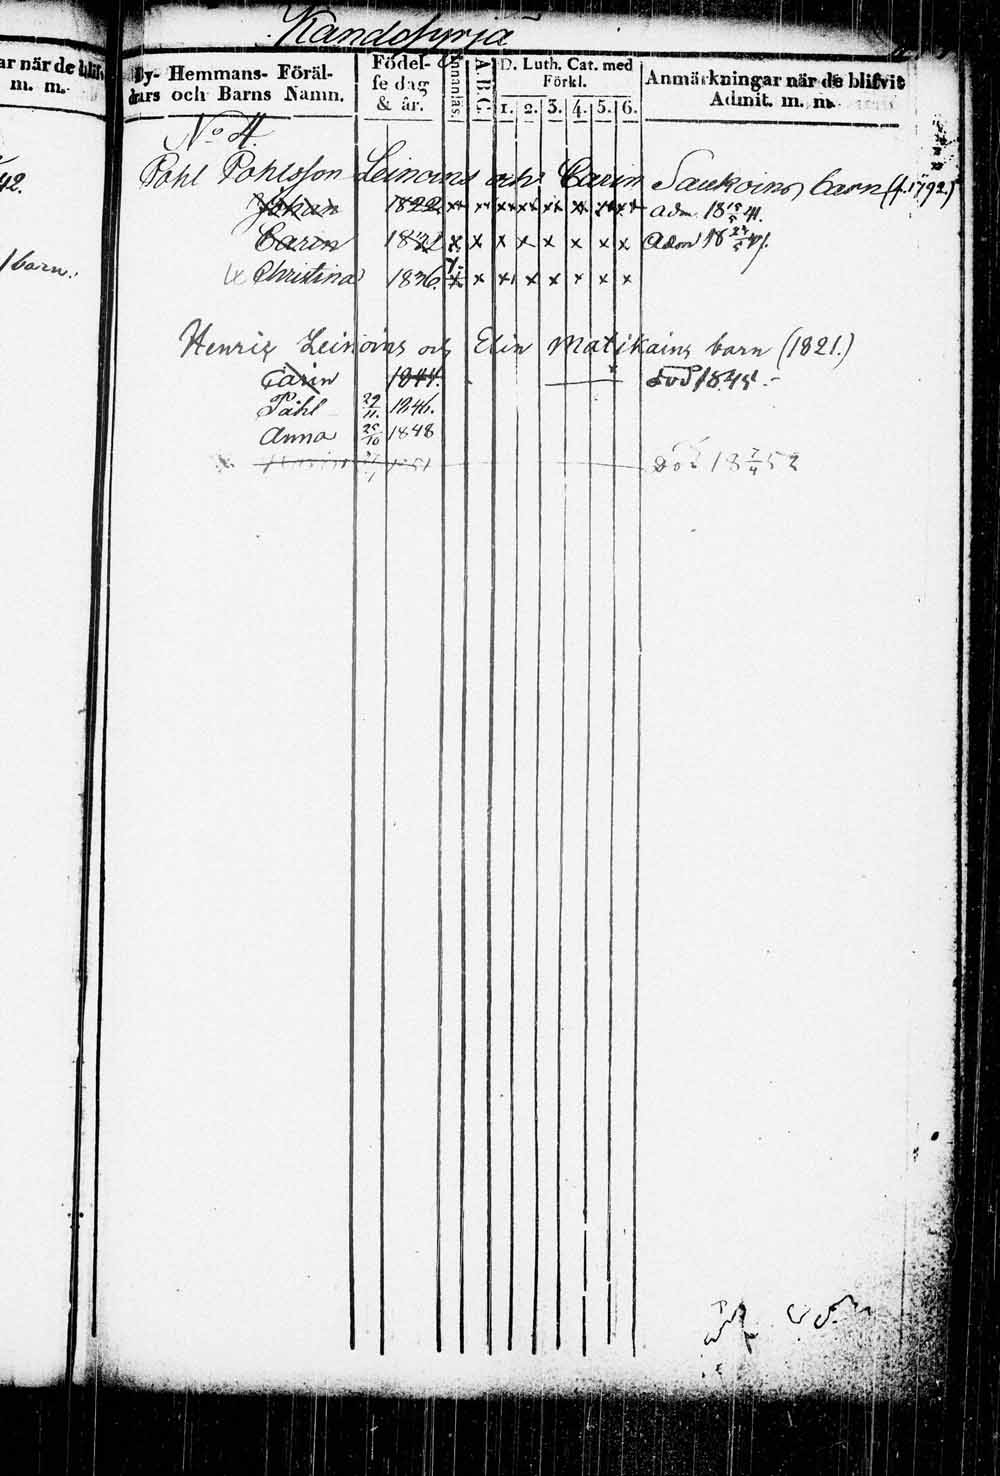 Kandosyrjä
ar när de blifv
m. m.
42.
barn.
By- Hemmans- Föräl-
drars och Barns Namn.
Födel-
se dag
& år.
Innanläs.
A.B.C.
D. Luth. Cat. med
Förkl.
1. 2. 3. 4. 5. 6.
Anmärkningar när de blifvit
Admit. m. m.
No 4.
Påhl Pohlsson Leinoins och Carin Saukoins barn (f. 1792)
Johan 1822 x x x x x x x x adm. 18 15/5 41.
Carin 1831 x x x x x x x x adm 18 /5 47.
Christina 1836. x x x x x x x x
Henric Leinoins och Elin Matikains barn (1821.)
Carin 1844. död 1845.
Påhl 29/11. 1846.
Anna 25/10 1848
Död 18 7/4 52